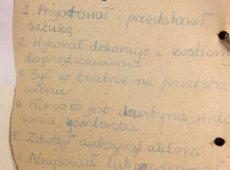 1. Przygotował i przedstawił
sztukę.
2. Wykonał dekoracje i kostium
do przedstawienia
3. Był w teatrze na przedsta
wieniu
4. Wie co to jest kurtyna,
garderoba
5. Zdobył autograf autora
6. Narysował lub